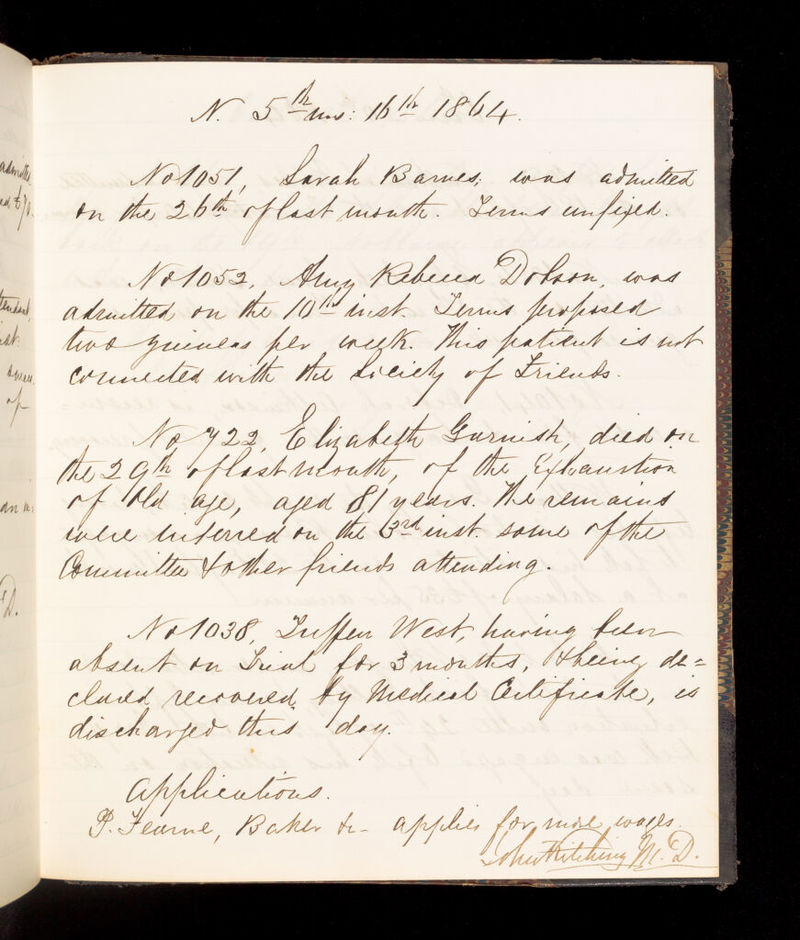 N. 5th ms: 16th 1864.
No 1051, Sarah Barnes; was admitted
on the 26th of last month. Terms unfixed.
No 1052, Amy Rebecca Dobson, was
admitted on the 10th inst. Terms proposed
two guineas per week. This patient is not
connected with the Society of Friends.
No 722, Elizabeth Gurnish, died on
the 29th of last month, of the Exhaustion
of Old age, aged 81 years. The remains
were interred on the 3rd inst. some of the
Committee & other friends attending.
No 1038, Tuffen West, having been
absent on Trial for 3 months, & being de=
clared recovered by Medical Certificate, is
discharged this day.
Applications.
P. Fearne, Baker &c - applies for more wages.
John Kitching M.D.